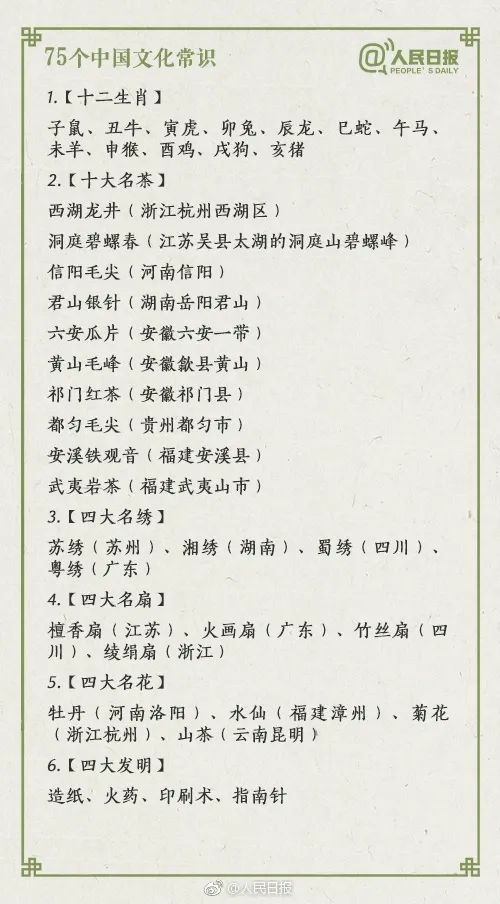 75个中国文化常识
@人民日报
PEOPLE'S DAILY
1.【十二生肖】
子鼠、丑牛、寅虎、卯兔、辰龙、巳蛇、午马、
未羊、申猴、酉鸡、戌狗、亥猪
2.【十大名茶】
西湖龙井（浙江杭州西湖区）
洞庭碧螺春（江苏吴县太湖的洞庭山碧螺峰）
信阳毛尖（河南信阳）
君山银针（湖南岳阳君山）
六安瓜片（安徽六安一带）
黄山毛峰（安徽歙县黄山）
祁门红茶（安徽祁门县）
都匀毛尖（贵州都匀市）
安溪铁观音（福建安溪县）
武夷岩茶（福建武夷山市）
3.【四大名绣】
苏绣（苏州）、湘绣（湖南）、蜀绣（四川）、
粤绣（广东）
4.【四大名扇】
檀香扇（江苏）、火画扇（广东）、竹丝扇（四
川）、绫绢扇（浙江）
5.【四大名花】
牡丹（河南洛阳）、水仙（福建漳州）、菊花
（浙江杭州）、山茶（云南昆明》
6.【四大发明】
造纸、火药、印刷术、指南针
@人民日报